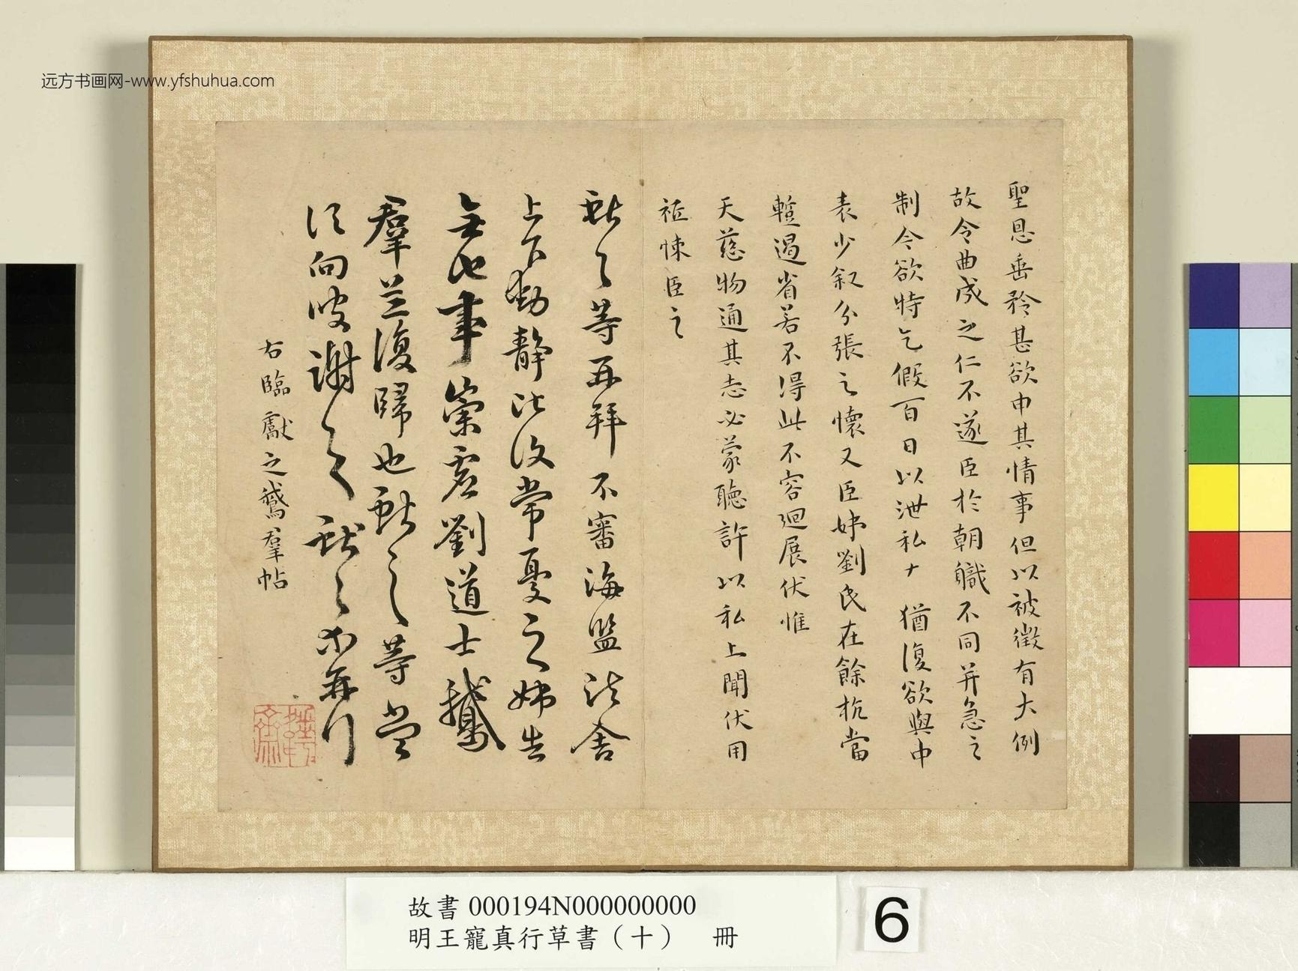 远方书画网-www.yfshuhua.com
聖恩垂矜甚欲申其情事但以被徵有大例
故令曲成之仁不遂臣於朝職不同并急之
制今欲特乞假百日以泄私 猶復欲與中
表少叙分張之懷又臣姊劉氏在餘杭當
蹔過省若不得此不容迴展伏惟
天慈物通其志必蒙聽許以私上聞伏用
祗悚臣之
獻之等再拜不審海鹽諸舍
上下動靜比復常憂之姊告
無他事崇虛劉道士鵝
羣並復歸也獻之等當
須向彼謝之獻之等再行
右臨獻之鵝羣帖
故書 000194N000000000
明王寵真行草書（十） 冊
6